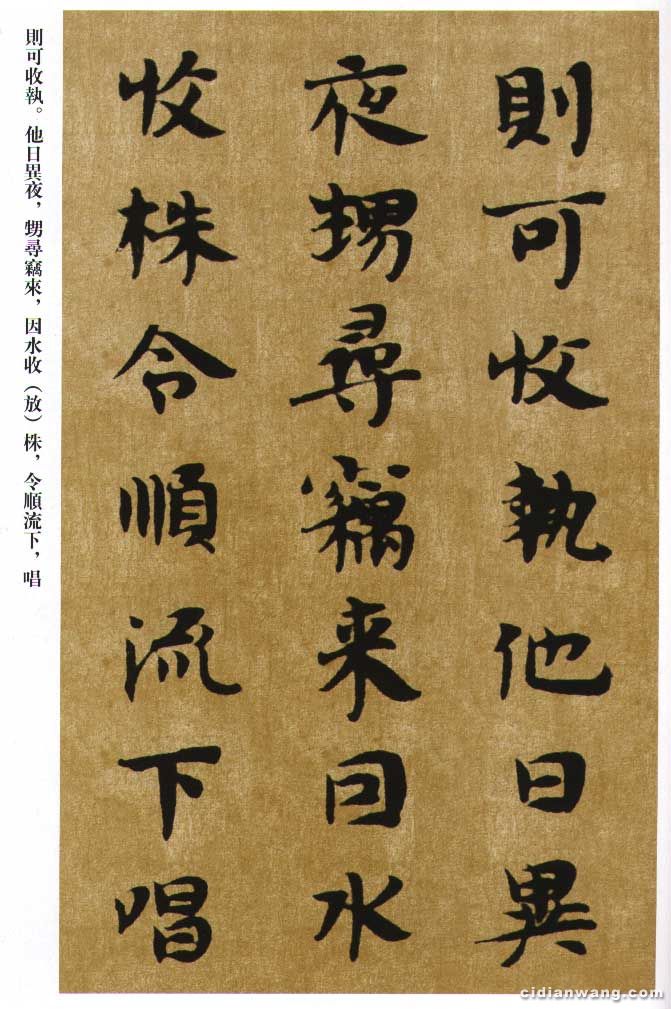 則可收執他日異
夜甥尋竊来因水
收株令順流下唱
則可收執。他日異夜，甥尋竊來，因水收（放）株，令順流下，唱
cidianwang.com